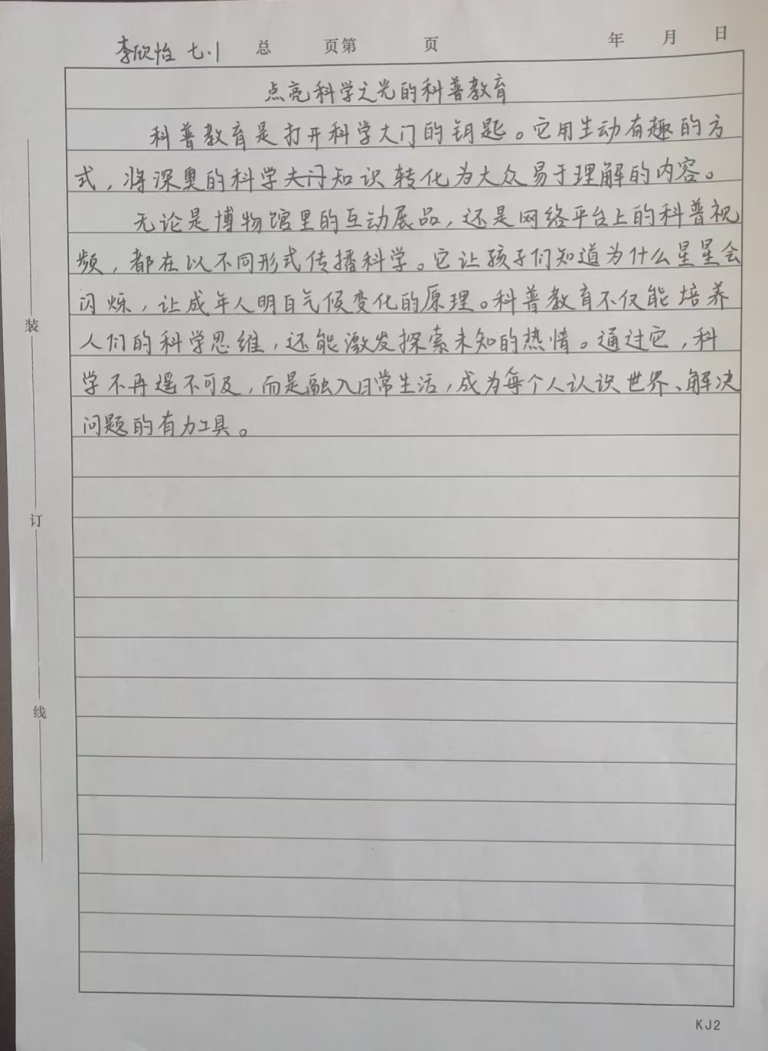 李欣怡 七.1 总 页第 页 年 月 日
点亮科学之光的科普教育
科普教育是打开科学大门的钥匙。它用生动有趣的方
式，将深奥的科学知识转化为大众易于理解的内容。
无论是博物馆里的互动展品，还是网络平台上的科普视
频，都在以不同形式传播科学。它让孩子们知道为什么星星会
闪烁，让成年人明白气候变化的原理。科普教育不仅能培养
人们的科学思维，还能激发探索未知的热情。通过它，科
学不再遥不可及，而是融入日常生活，成为每个人认识世界、解决
问题的有力工具。
装
订
线
KJ2